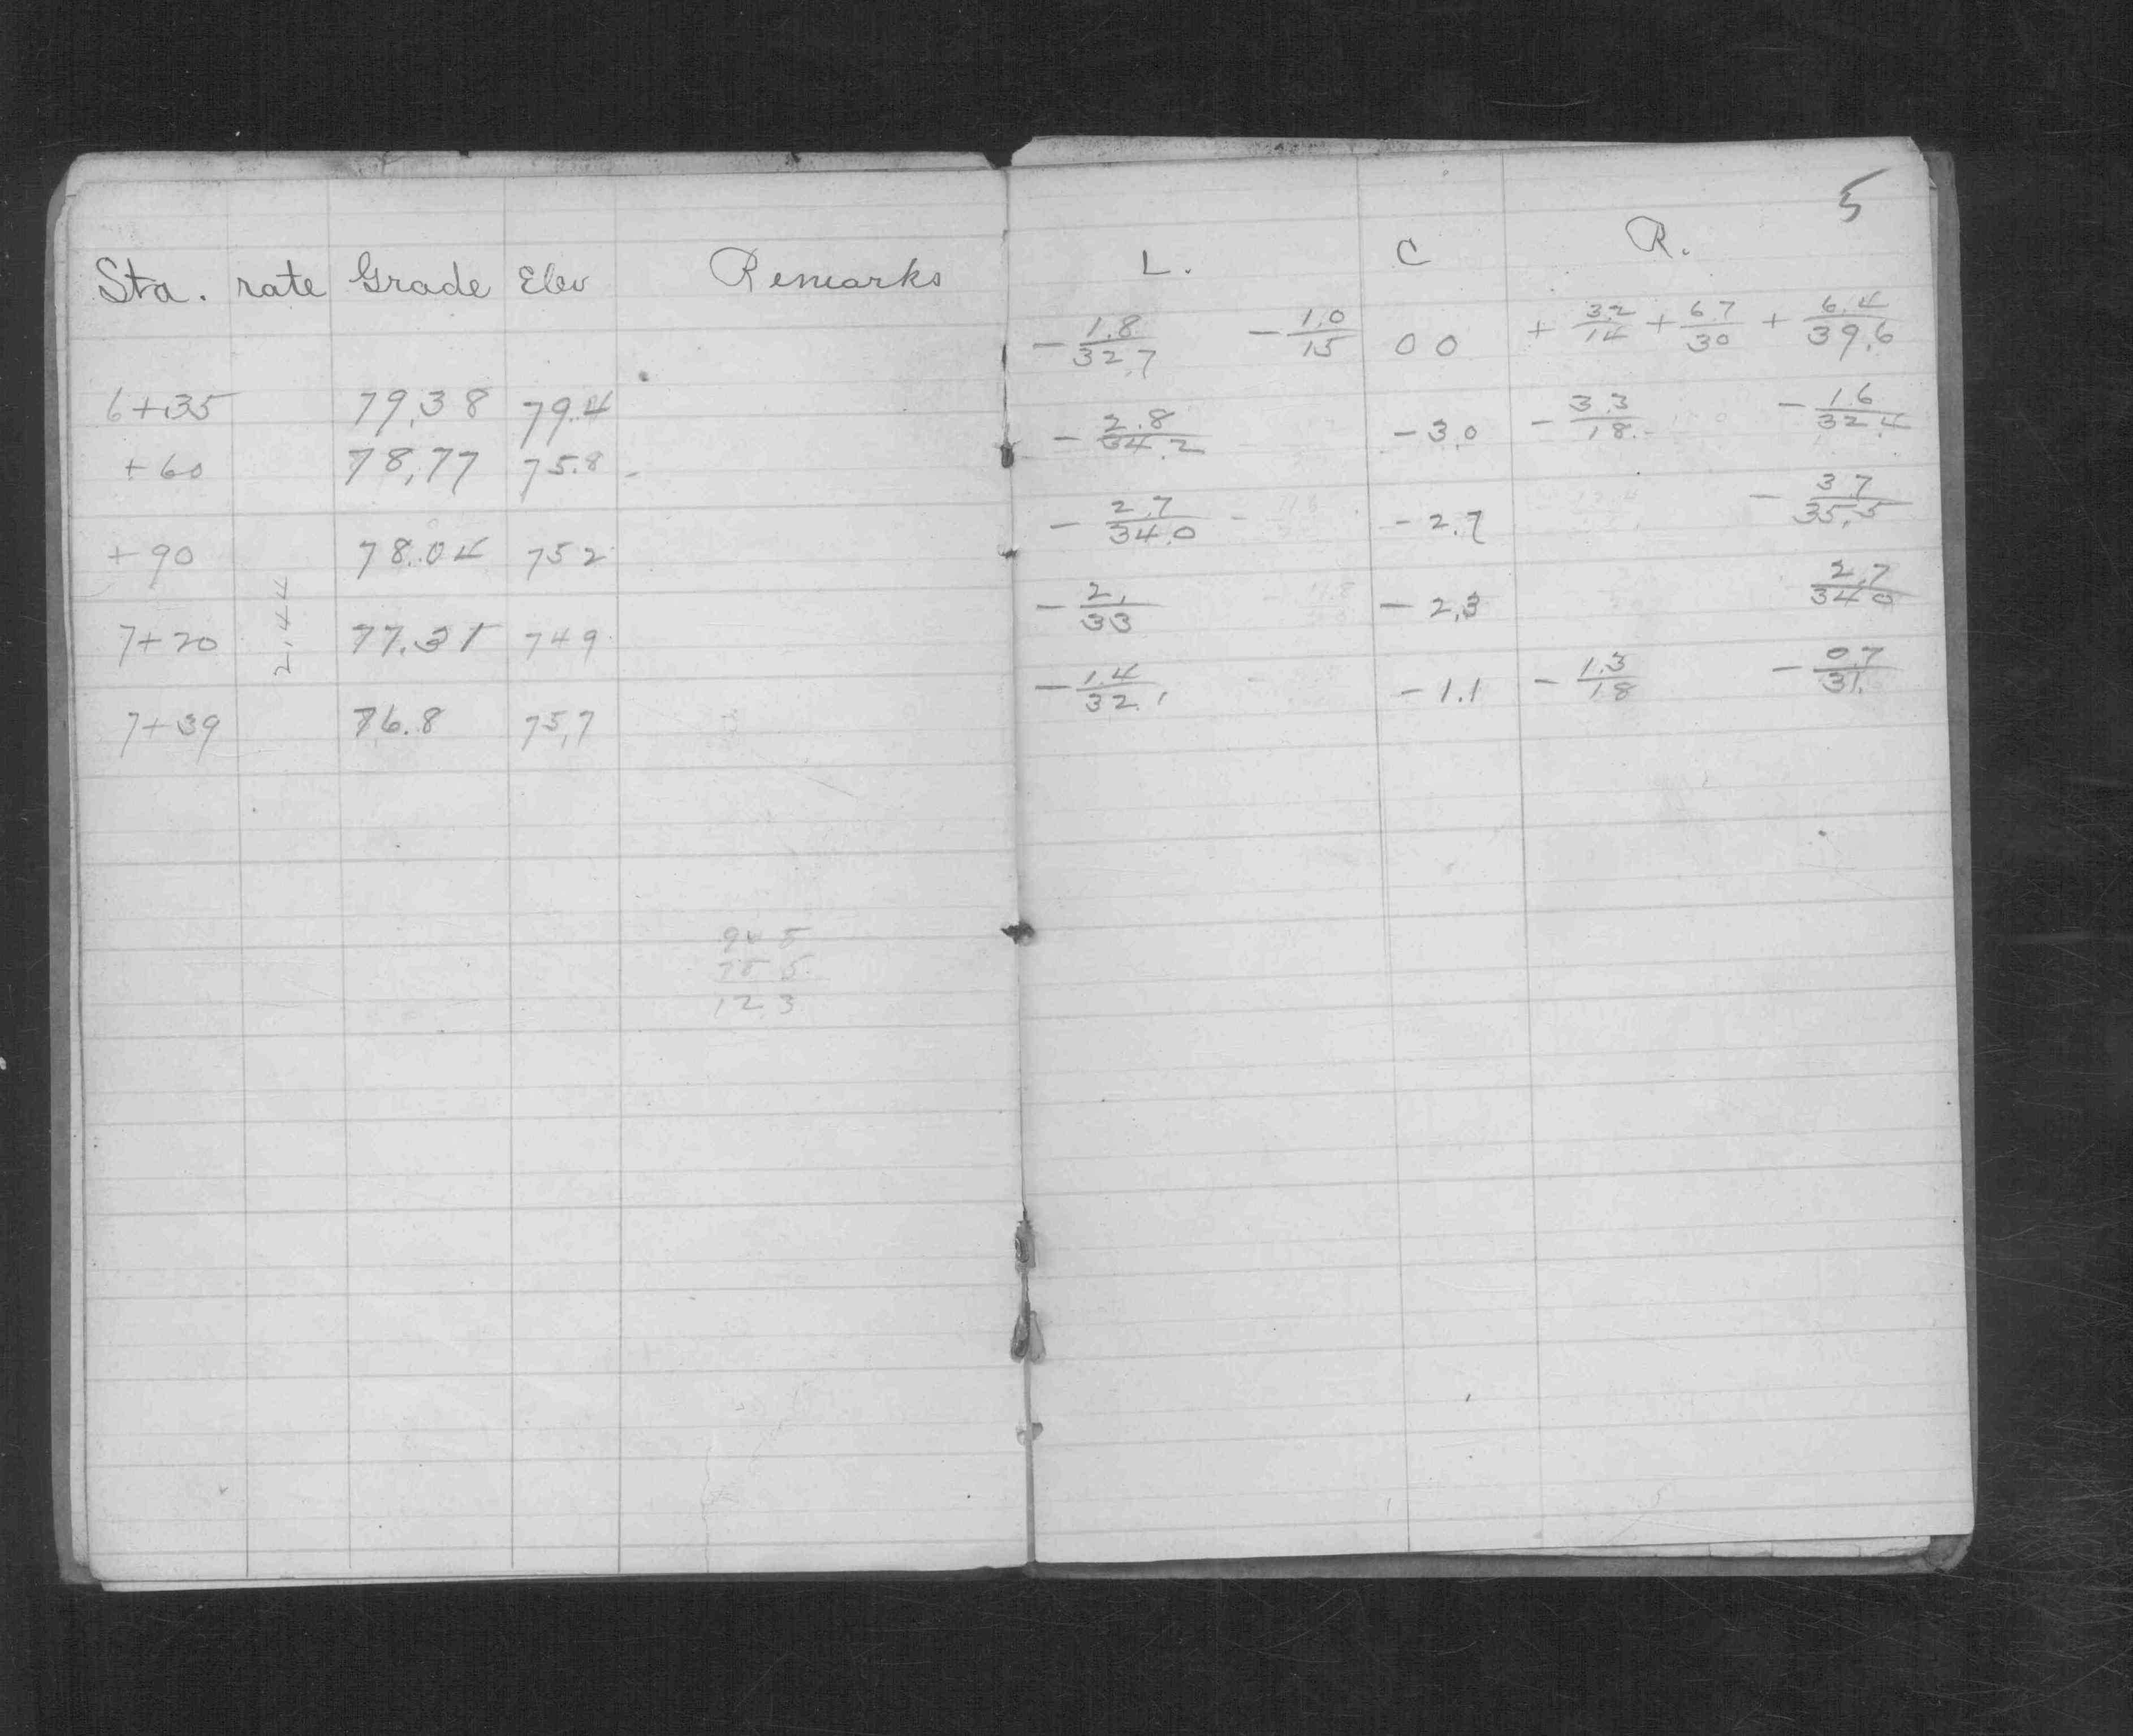 5
Sta. rate Grade Elev Remarks
6+35 79.38 79.4
+60 78.77 75.8
+90 78.04 75 2
2.44
7+20 77.31 74 9
7+39 76.8 75.7
5
12.3
L. C R.
- 1.8/32.7 - 1.0/15 0 0 + 3.2/14 + 6.7/30 + 6.4/39.6
- 2.8/34.2 - 3.0 - 3.3/18. - 1.6/32.4
- 2.7/34.0 - 2.7 - 3.7/35.5
- 2./33 - 2.3 2.7/34 0
- 1.4/32.1 - 1.1 - 1.3/18 - 0.7/31.